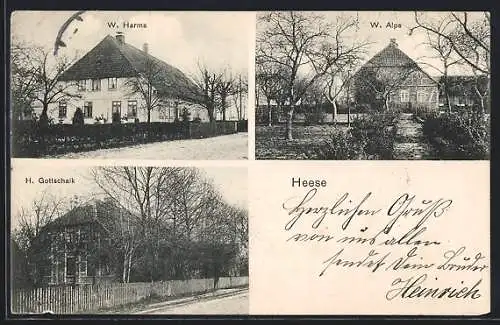 W. Harms
W. Alps
H. Gottschalk
Heese
Herzlichen Gruß
von uns allen
sendet Dein Bruder
Heinrich